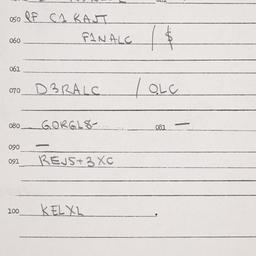 050 QF C1 KAJT
060 F1NALC / $
061
070 D3RALC / QLC
080 GORGL8- 081 —
090 —
091 REJ5+3XC
100 KELXL .